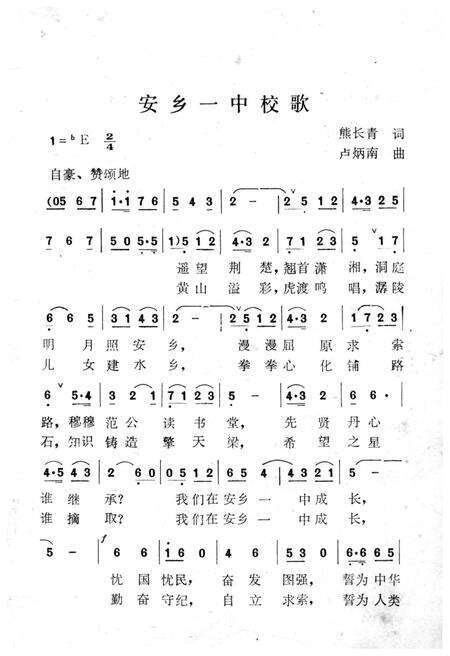 安乡一中校歌
1=ᵇE 2/4
熊长青 词
卢炳南 曲
自豪、赞颂地
(05 6 7 | 1·1 7 6 | 5 4 3 | 2 - | 2 - | 2 5 1 2 | 4·3 2 5
7 6 7 | 5 0 5·5 | 1) 5 1 2 | 4·3 2 | 7 1 2 3 | 2·5 | 5 1 7
遥望 荆 楚, 翘首 潇 湘, 洞庭
黄山 溢 彩, 虎渡 鸣 唱, 潺陵
6 6 5 | 3 1 4 3 | 2 - | 2 5 1 2 | 4·3 2 | 1 7 2 3
明 月 照 安 乡, 漫漫 屈 原 求 索
儿 女 建 水 乡, 拳拳 心 化 铺 路
6 5·4 | 3 2 1 | 7 1 2 3 | 5 - | 5·4 3 2 | 6 6·
路, 穆穆 范 公 读 书 堂, 先 贤 丹 心
石, 知识 铸 造 擎 天 梁, 希 望 之 星
4·5 4 3 | 2 6 0 | 0 5 1 2 | 6 5 | 4 3 2 1 | 5 -
谁 继 承? 我们 在 安 乡 一 中 成 长,
谁 摘 取? 我们 在 安 乡 一 中 成 长,
5 - | 6 6 | 1 6 0 | 4 5 | 5 3 0 | 6·6 6 5
忧 国 忧民, 奋 发 图强, 誓为 中华
勤 奋 守纪, 自 立 求索, 誓为 人类